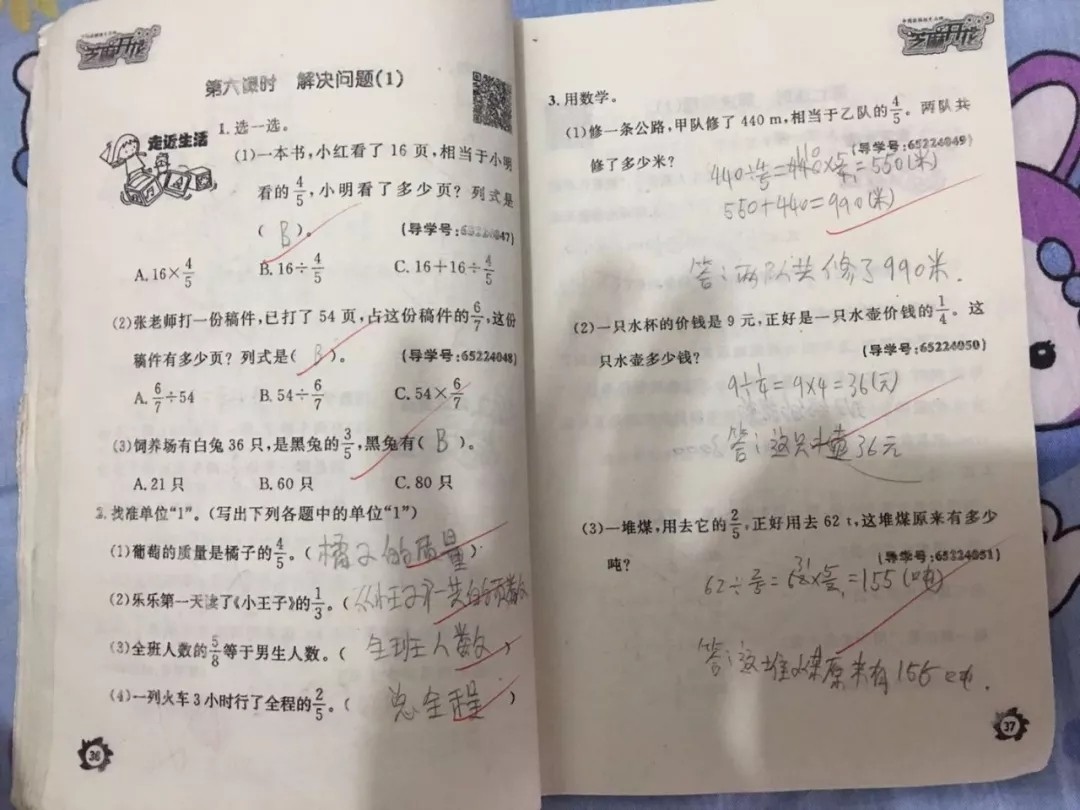 芝麻开花
第六课时 解决问题(1)
走近生活
1.选一选。
(1)一本书,小红看了16页,相当于小明
看的4/5,小明看了多少页?列式是
( B )。 (导学号:65224047)
A.16×4/5 B.16÷4/5 C.16+16÷4/5
(2)张老师打一份稿件,已打了54页,占这份稿件的6/7,这份
稿件有多少页?列式是( B )。 (导学号:65224048)
A.6/7÷54 B.54÷6/7 C.54×6/7
(3)饲养场有白兔36只,是黑兔的3/5,黑兔有( B )。
A.21只 B.60只 C.80只
2.找准单位“1”。(写出下列各题中的单位“1”)
(1)葡萄的质量是橘子的4/5。( 橘子的质量 )
(2)乐乐第一天读了《小王子》的1/3。(《小王子》一共的页数)
(3)全班人数的5/8等于男生人数。( 全班人数 )
(4)一列火车3小时行了全程的2/5。( 总全程 )
36
芝麻开花
3.用数学。
(1)修一条公路,甲队修了440 m,相当于乙队的4/5。两队共
修了多少米? (导学号:65224049)
440÷4/5=440×5/4=550(米)
550+440=990(米)
答:两队共修了990米.
(2)一只水杯的价钱是9元,正好是一只水壶价钱的1/4。这
只水壶多少钱? (导学号:65224050)
9÷1/4=9×4=36(元)
答:这只水壶36元
(3)一堆煤,用去它的2/5,正好用去62 t,这堆煤原来有多少
吨? (导学号:65224051)
62÷2/5=62×5/2=155(吨)
答:这堆煤原来有155吨.
37